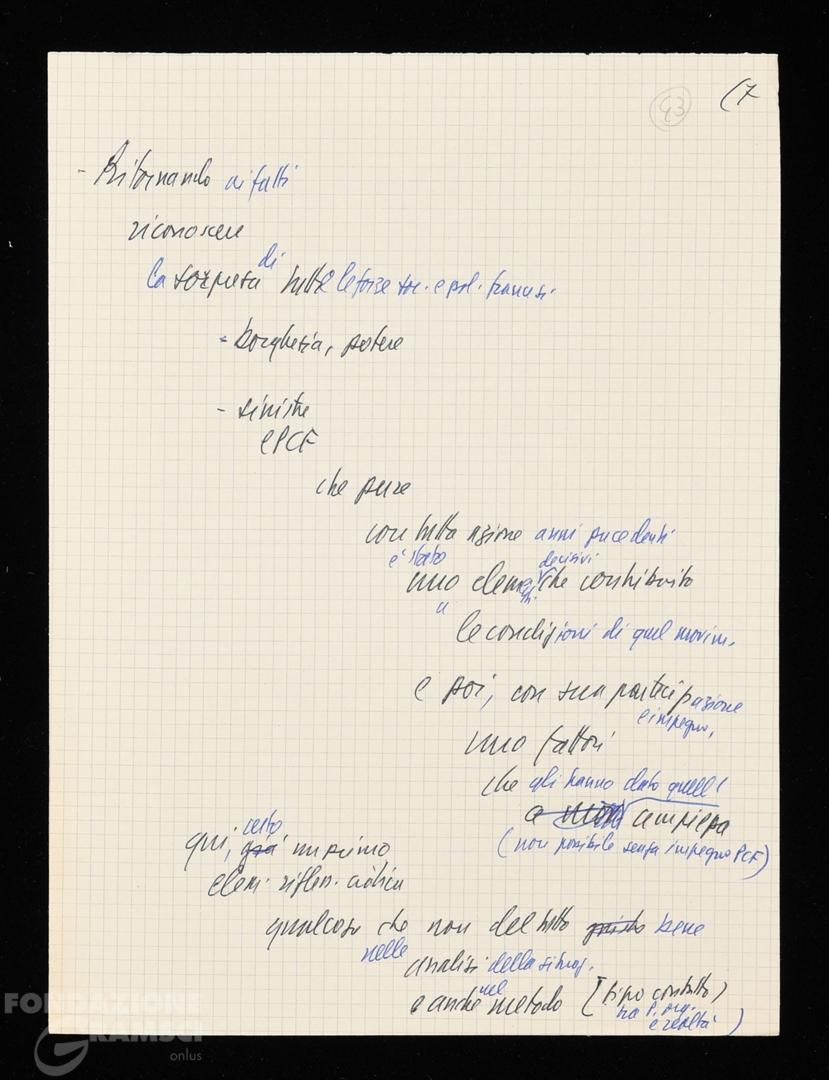 43
(7
- Ritornando ai fatti
riconoscere
la sorpresa di tutte le forze soc. e pol. francesi.
- borghesia, potere
- sinistre
e PCF
che pure
con tutta azione anni precedenti
è stato decisivi
uno elementi che contribuito
a le condizioni di quel movim.
e poi, con sua partecipazione
e impegno,
uno fattori
che gli hanno dato quell'
a ampiezza
(non possibile senza impegno PCF)
qui, certo già un primo
elem. rifless. critica
qualcosa che non del tutto giusto bene
nelle analisi della situaz.
e anche nel metodo [tipo contatto)
tra P. org.
e realtà)
FONDAZIONE
GRAMSCI
onlus